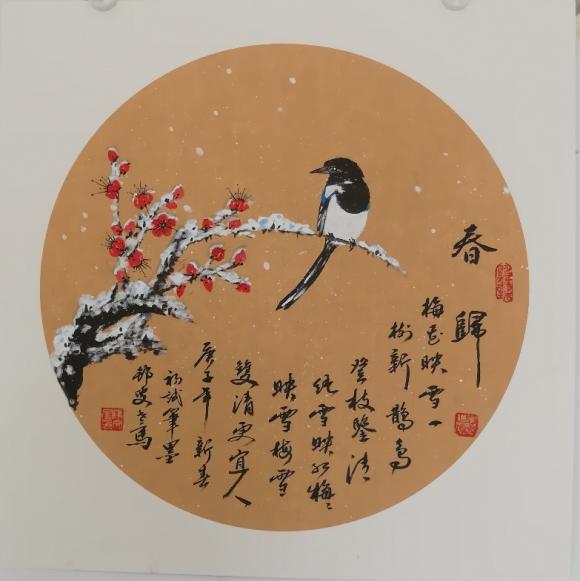 春歸
梅花映雪一
樹新鵲鳥
登枝鑒清
純雪映紅梅梅
映雪梅雪
雙清更宜人
庚子年新春
初試筆墨